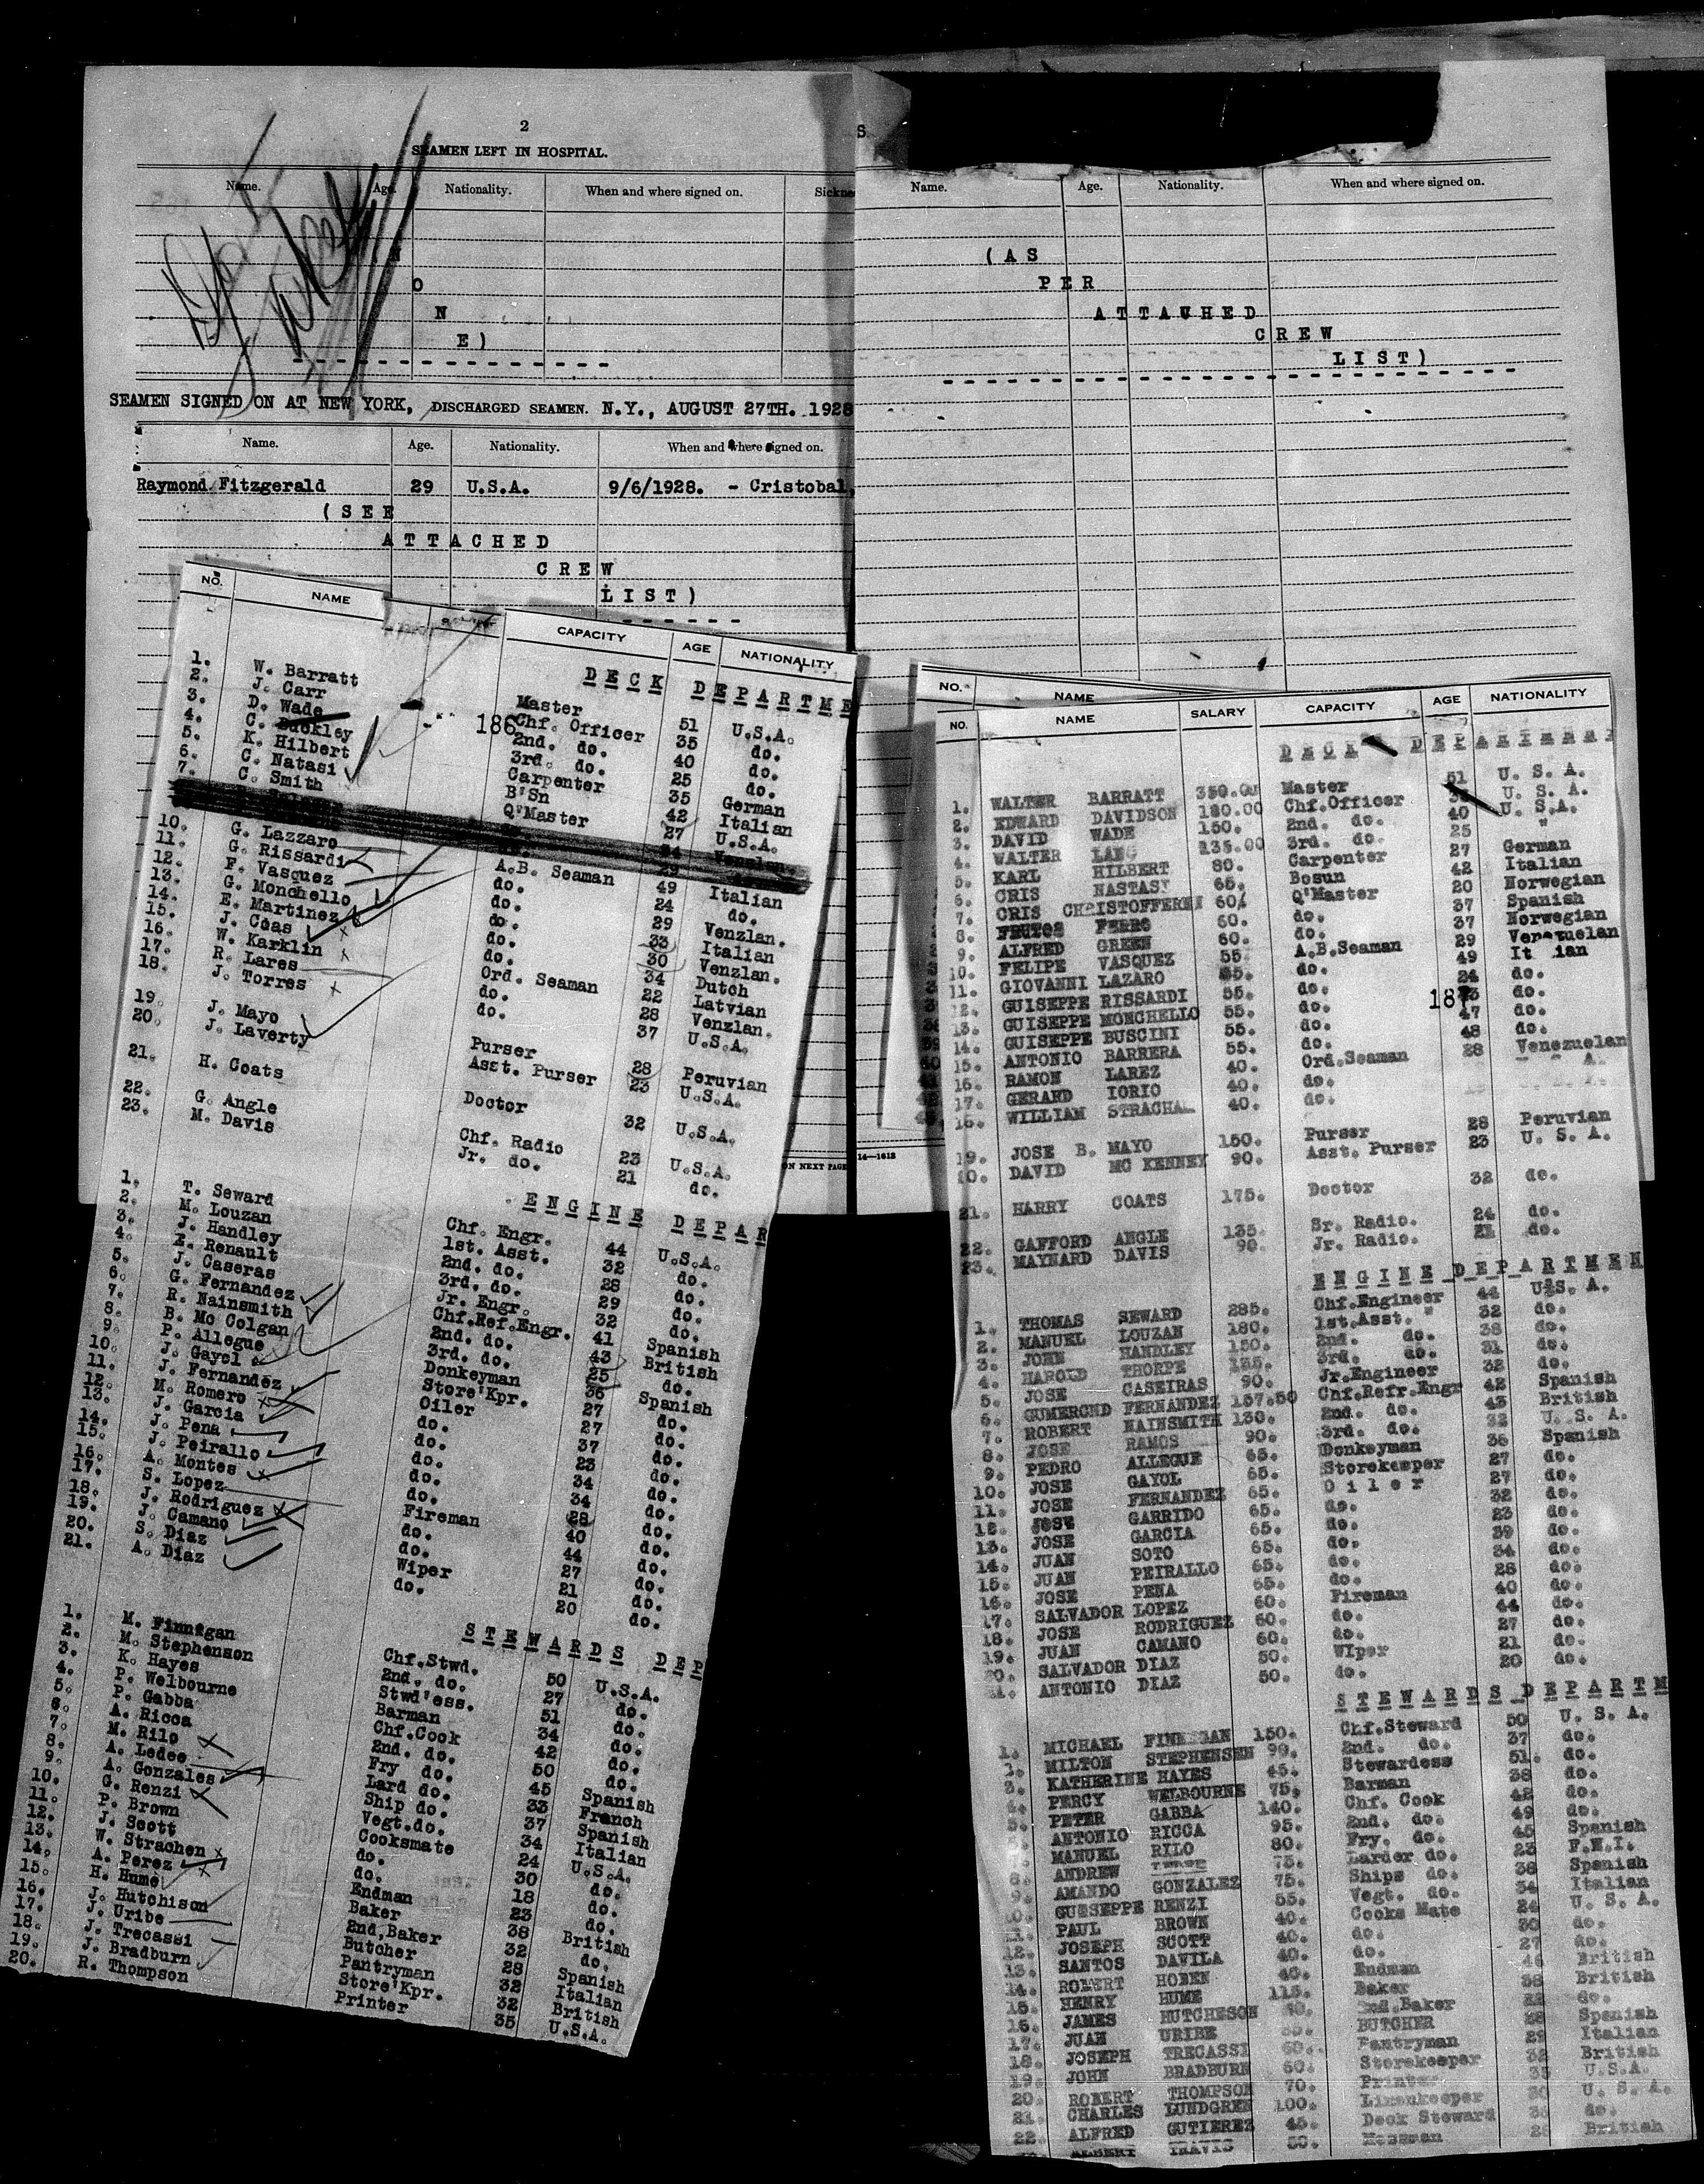 2
SEAMEN LEFT IN HOSPITAL.
Name. Age. Nationality. When and where signed on.
(N
O
N
E)
SEAMEN SIGNED ON AT NEW YORK, DISCHARGED SEAMEN. N.Y., AUGUST 27TH. 1928
Name. Age. Nationality. When and where signed on.
Raymond Fitzgerald 29 U.S.A. 9/6/1928. - Cristobal,
(SEE
ATTACHED
CREW
LIST)
NO. NAME CAPACITY AGE NATIONALITY
DECK DEPARTME
1. W. Barratt Master 51 U.S.A.
2. J. Carr Chf. Officer 35 do.
3. D. Wade 2nd. do. 40 do.
4. C. Buckley 3rd. do. 25 do.
5. K. Hilbert Carpenter 35 German
6. C. Natasi B'Sn 42 Italian
7. C. Smith Q'Master 27 U.S.A.
186
10. G. Lazzaro A.B. Seaman 49 Italian
11. G. Rissardi do. 24 do.
12. F. Vasquez do. 29 Venzlan.
13. G. Monchello do. 33 Italian
14. E. Martinez do. 30 Venzlan.
15. J. Coas do. 34 Dutch
16. W. Karklin Ord. Seaman 22 Latvian
17. R. Lares do. 28 Venzlan.
18. J. Torres do. 37 U.S.A.
19. J. Mayo Purser 28 Peruvian
20. J. Laverty Asst. Purser 23 U.S.A.
21. H. Coats Doctor 32 U.S.A.
22. G. Angle Chf. Radio 23 U.S.A.
23. M. Davis Jr. do. 21 do.
ENGINE DEPAR
1. T. Seward Chf. Engr. 44 U.S.A.
2. M. Louzan 1st. Asst. 32 do.
3. J. Handley 2nd. do. 28 do.
4. E. Renault 3rd. do. 29 do.
5. J. Caseras Jr. Engr. 32 do.
6. G. Fernandez Chf.Ref.Engr. 41 Spanish
7. R. Nainsmith 2nd. do. 43 British
8. B. Mc Colgan 3rd. do. 25 do.
9. P. Allegue Donkeyman 36 Spanish
10. J. Gayol Store'Kpr. 27 do.
11. J. Fernandez Oiler 27 do.
12. M. Romero do. 37 do.
13. J. Garcia do. 23 do.
14. J. Pena do. 34 do.
15. J. Peirallo do. 34 do.
16. A. Montes do. 28 do.
17. S. Lopez Fireman 40 do.
18. J. Rodriguez do. 44 do.
19. J. Camano do. 27 do.
20. S. Diaz Wiper 21 do.
21. A. Diaz do. 20 do.
STEWARDS DEP
1. M. Finnegan Chf.Stwd. 50 U.S.A.
2. M. Stephenson 2nd. do. 27 do.
3. K. Hayes Stwd'ess. 51 do.
4. P. Welbourne Barman 34 do.
5. P. Gabba Chf.Cook 42 do.
6. A. Ricca 2nd. do. 50 do.
7. M. Rilo Fry do. 45 Spanish
8. A. Ledee Lard do. 33 French
9. A. Gonzales Ship do. 37 Spanish
10. G. Renzi Vegt.do. 34 Italian
11. P. Brown Cooksmate 24 U.S.A.
12. J. Scott do. 30 do.
13. W. Strachen do. 18 do.
14. A. Perez Endman 23 do.
15. H. Hume Baker 38 British
16. J. Hutchison 2nd.Baker 32 do.
17. J. Uribe Butcher 28 Spanish
18. J. Trecassi Pantryman 32 Italian
19. J. Bradburn Store'Kpr. 32 British
20. R. Thompson Printer 35 U.S.A.
ON NEXT PAGE
Name. Age. Nationality. When and where signed on.
(AS
PER
ATTACHED
CREW
LIST)
14—1612
NO. NAME
NO. NAME SALARY CAPACITY AGE NATIONALITY
DECK DEPARTMEN
1. WALTER BARRATT 350.00 Master 51 U. S. A.
2. EDWARD DAVIDSON 180.00 Chf.Officer U. S. A.
3. DAVID WADE 150. 2nd. do. 40 U. S.A.
4. WALTER LANG 135.00 3rd. do. 25 "
5. KARL HILBERT 80. Carpenter 27 German
6. CRIS NASTASY 65. Bosun 42 Italian
7. CRIS CHRISTOFFERSEN 60. Q'Master 20 Norwegian
8. FRUTOS FERRO 60. do. 37 Spanish
9. ALFRED GREEN 60. do. 37 Norwegian
10. FELIPE VASQUEZ 55. A.B.Seaman 29 Venezuelan
11. GIOVANNI LAZARO 55. do. 49 Italian
12. GUISEPPE RISSARDI 55. do. 24 do.
13. GUISEPPE MONCHELLO 55. do. do.
14. GUISEPPE BUSCINI 55. do. 47 do.
15. ANTONIO BARRERA 55. do. 48 do.
16. RAMON LAREZ 40. Ord.Seaman 28 Venezuelan
17. GERARD IORIO 40. do.
18. WILLIAM STRACHAN 40. do.
187
19. JOSE B. MAYO 150. Purser 28 Peruvian
20. DAVID MC KENNEY 90. Asst. Purser 23 U. S. A.
21. HARRY COATS 175. Doctor 32 do.
22. GAFFORD ANGLE 135. Sr. Radio. 24 do.
23. MAYNARD DAVIS 90. Jr. Radio. 21 do.
ENGINE DEPARTMEN
1. THOMAS SEWARD 285. Chf.Engineer 44 U.S. A.
2. MANUEL LOUZAN 180. 1st.Asst. " 32 do.
3. JOHN HANDLEY 150. 2nd. do. 38 do.
4. HAROLD THORPE 135. 3rd. do. 31 do.
5. JOSE CASEIRAS 90. Jr.Engineer 32 do.
6. GUMERCND FERNANDEZ 157.50 Chf.Refr.Engr 42 Spanish
7. ROBERT NAINSMITH 130. 2nd. do. 43 British
8. JOSE RAMOS 90. 3rd. do. 32 U. S. A.
9. PEDRO ALLEGUE 65. Donkeyman 36 Spanish
10. JOSE GAYOL 65. Storekeeper 27 do.
11. JOSE FERNANDEZ 65. Oiler 27 do.
12. JOSE GARRIDO 65. do. 32 do.
13. JOSE GARCIA 65. do. 23 do.
14. JUAN SOTO 65. do. 39 do.
15. JUAN PEIRALLO 65. do. 34 do.
16. JOSE PENA 65. do. 28 do.
17. SALVADOR LOPEZ 60. Fireman 40 do.
18. JOSE RODRIGUEZ 60. do. 44 do.
19. JUAN CAMANO 60. do. 27 do.
20. SALVADOR DIAZ 50. Wiper 21 do.
21. ANTONIO DIAZ 50. do. 20 do.
STEWARDS DEPARTM
1. MICHAEL FINNEGAN 150. Chf.Steward 50 U. S. A.
2. MILTON STEPHENSEN 90. 2nd. do. 37 do.
3. KATHERINE HAYES 45. Stewardess 51. do.
4. PERCY WELBOURNE 75. Barman 38 do.
5. PETER GABBA 140. Chf. Cook 42 do.
6. ANTONIO RICCA 95. 2nd. do. 49 do.
7. MANUEL RILO 80. Fry. do. 45 Spanish
8. ANDREW 75. Larder do. 23 F.W.I.
9. AMANDO GONZALEZ 75. Ships do. 38 Spanish
10. GUISEPPE RENZI 55. Vegt. do. 34 Italian
11. PAUL BROWN 40. Cooks Mate 24 U. S. A.
12. JOSEPH SCOTT 40. do. 30 do.
13. SANTOS DAVILA 40. do. 27 do.
14. ROBERT HOBEN 40. Endman British
15. HENRY HUME 115. Baker 38 British
16. JAMES HUTCHESON 2nd.Baker do.
17. JUAN URIBE BUTCHER 28 Spanish
18. JOSEPH TRECASSI 60. Pantryman 29 Italian
19. JOHN BRADBURN 60. Storekeeper 32 British
20. ROBERT THOMPSON 70. Printer 35 U.S.A.
21. CHARLES LUNDGREN 100. Linenkeeper U. S. A.
22. ALFRED GUTIEREZ 45. Deck Steward do.
ALBERT TRAVIS 50. Messman British